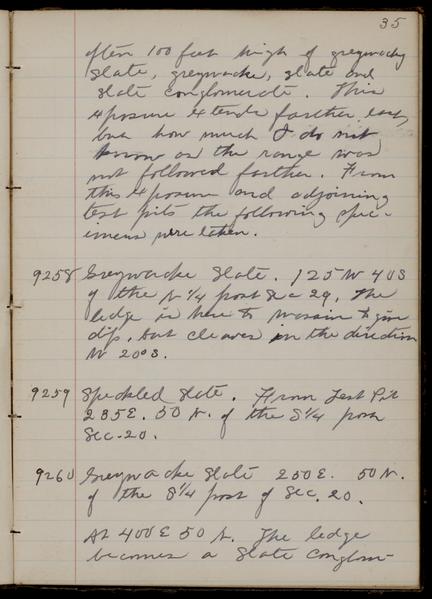 35
often 100 feet high of greywacky
slate, greywacke, slate and
slate conglomerate. This
exposure extends farther east,
but how much I do not
know as the range was
not followed farther. From
this exposure and adjoining
test pits the following spec-
imens were taken.
9258 Greywacke Slate. 125 W 40 S
of the N 1/4 post Sec 29. The
ledge is here to massive to give
dip, but cleaves in the direction
W 20° S.
9259 Speckled Slate. From Test Pit
235 E. 50 N. of the S 1/4 post
Sec. 20.
9260 Greywacke Slate 250 E. 50 N.
of the S 1/4 post of Sec. 20.
At 400 E 50 N. The ledge
becomes a Slate Conglom-